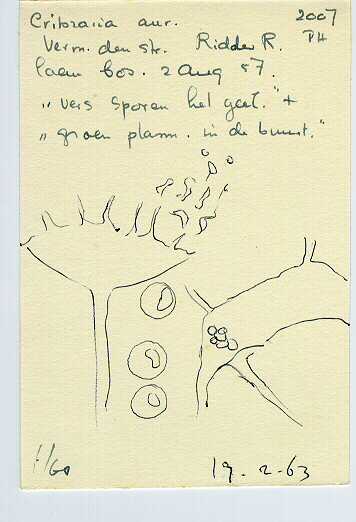 Cribraria aur. 2007
Verm. den str. Ridder R. PH
laan bos. 2 aug 57.
„ vers sporen het geel." +
„ groen plasm. in de buurt."
1/60 19.2.63